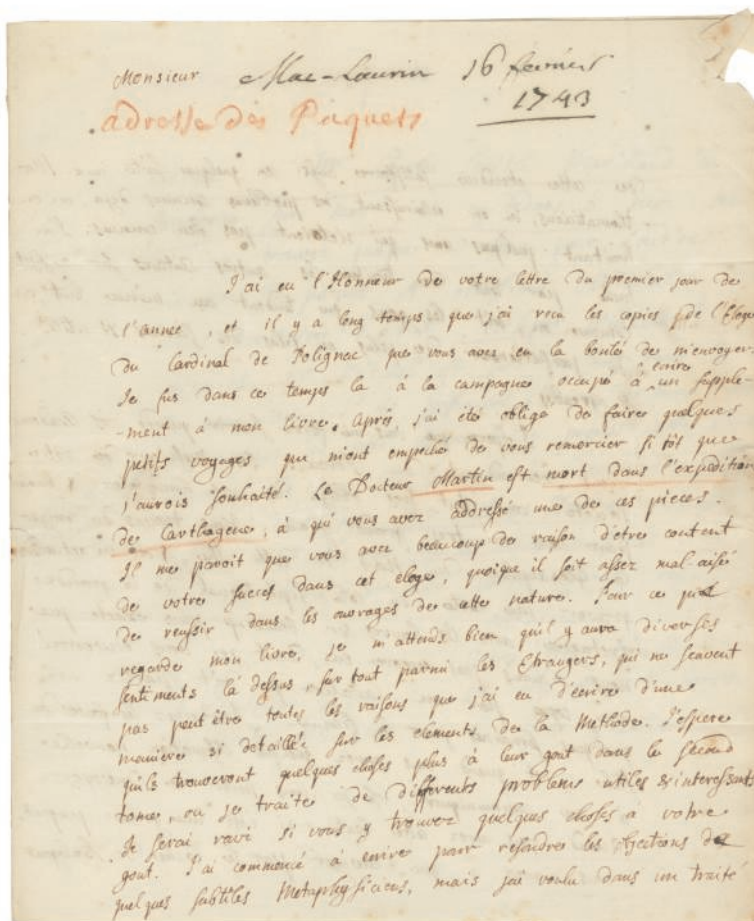 Monsieur Mac-Laurin 16 fevrier
1743
adresse des Paquets
J'ai eu l'Honneur de votre lettre du premier jour de
l'année, et il y a long temps que j'ai recu les copies de l'Eloge
du Cardinal de Polignac que vous avez eu la bonté de m'envoyer.
Je fus dans ce temps la à la campagne occupé à ecrire un supple-
-ment à mon livre. Après, j'ai été obligé de faire quelques
petits voyages qui m'ont empeché de vous remercier si tôt que
j'aurois souhaité. Le Docteur Martin est mort dans l'expedition
de Carthagene, à qui vous avez addressé une de ces pieces.
Il me paroit que vous avez beaucoup de raison d'être content
de votre succes dans cet eloge, quoique il soit assez mal-aisé
de reussir dans les ouvrages de cette nature. Pour ce qui
regarde mon livre, je m'attends bien qu'il y aura diverses
sentiments là dessus, sur tout parmi les Etrangers, qui ne scavent
pas peut être toutes les raisons que j'ai eu d'écrire d'une
maniere si detaillée sur les elements de la Methode. J'espere
qu'ils trouveront quelques choses plus à leur gout dans le second
tome, ou je traite de differents problems utiles & interessants
Je serai ravi si vous y trouvez quelques choses à votre
gout. J'ai commencé à ecrire pour resoudre les objections de
quelques subtiles Metaphysiciens, mais j'ai voulu dans un traité